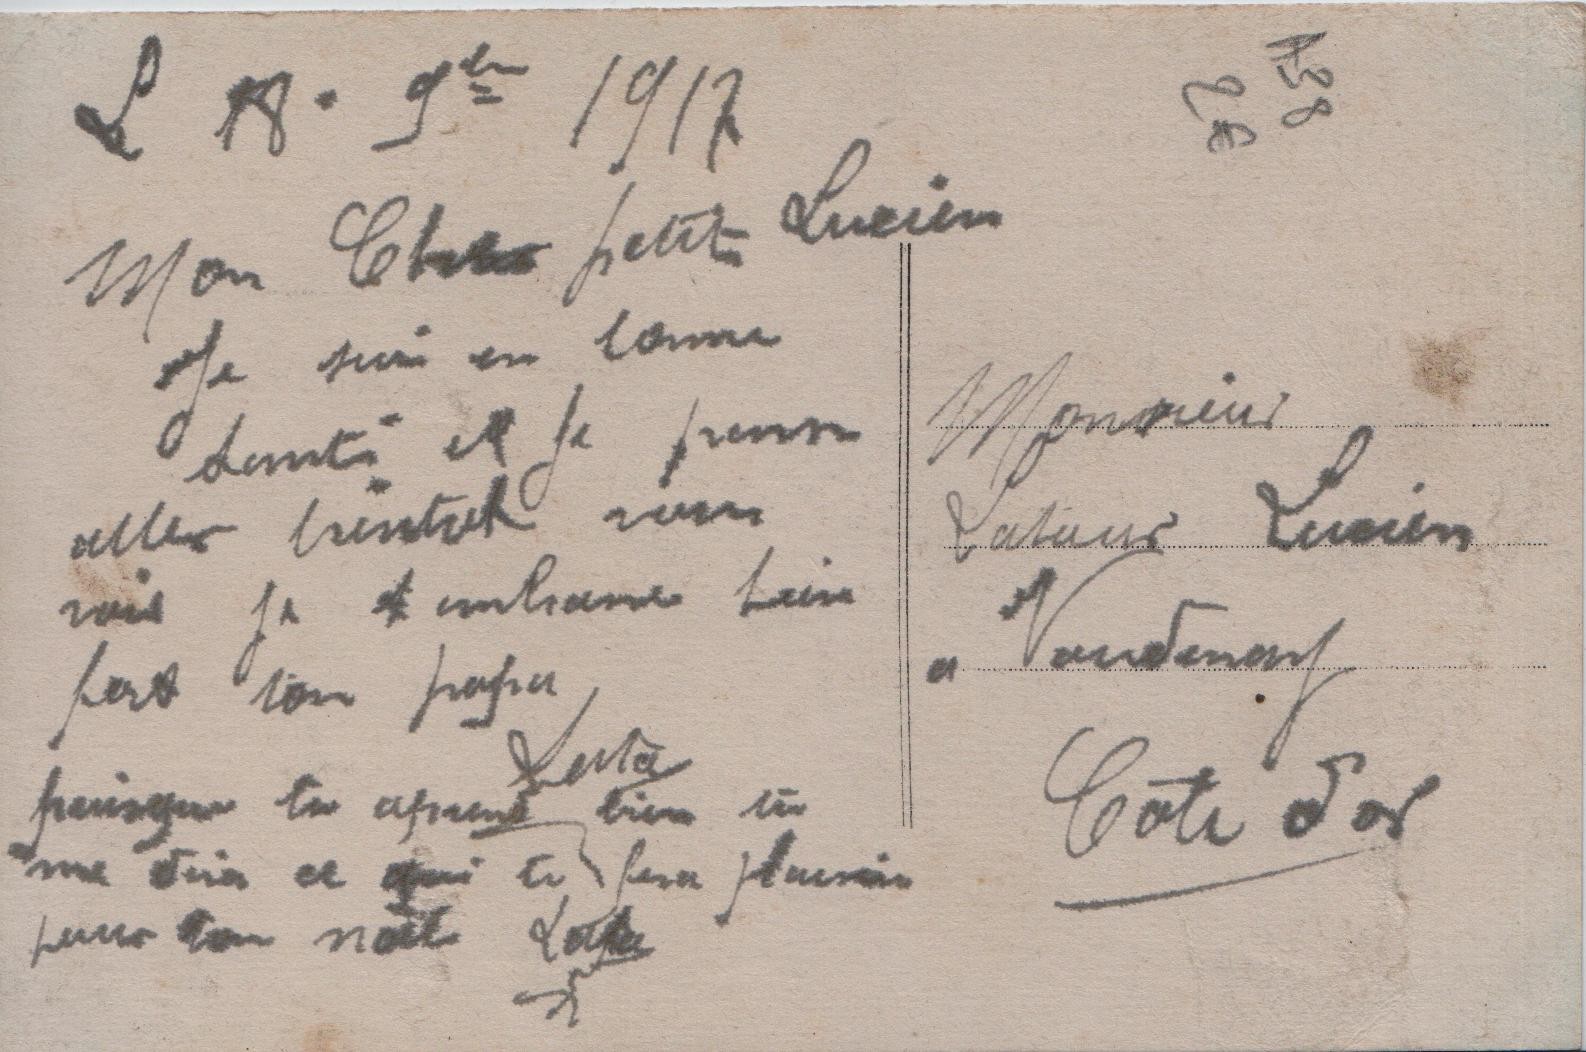 L 18. 9bre 1917
Mon Cher petit Lucien
Je sui en bonne
santé et je pense
aller bientot vous
voir je t embrasse bien
fort ton papa
puisque tu aprend bien tu
me dira ce qui te fera plaisir
pour ton noël
A38
2E
Monsieur
Latour Lucien
a Vandenesse
Côte d'or